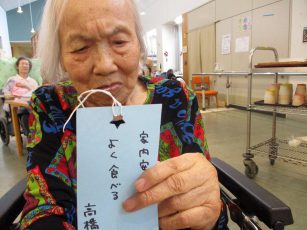 家内安
よく食べる
高橋